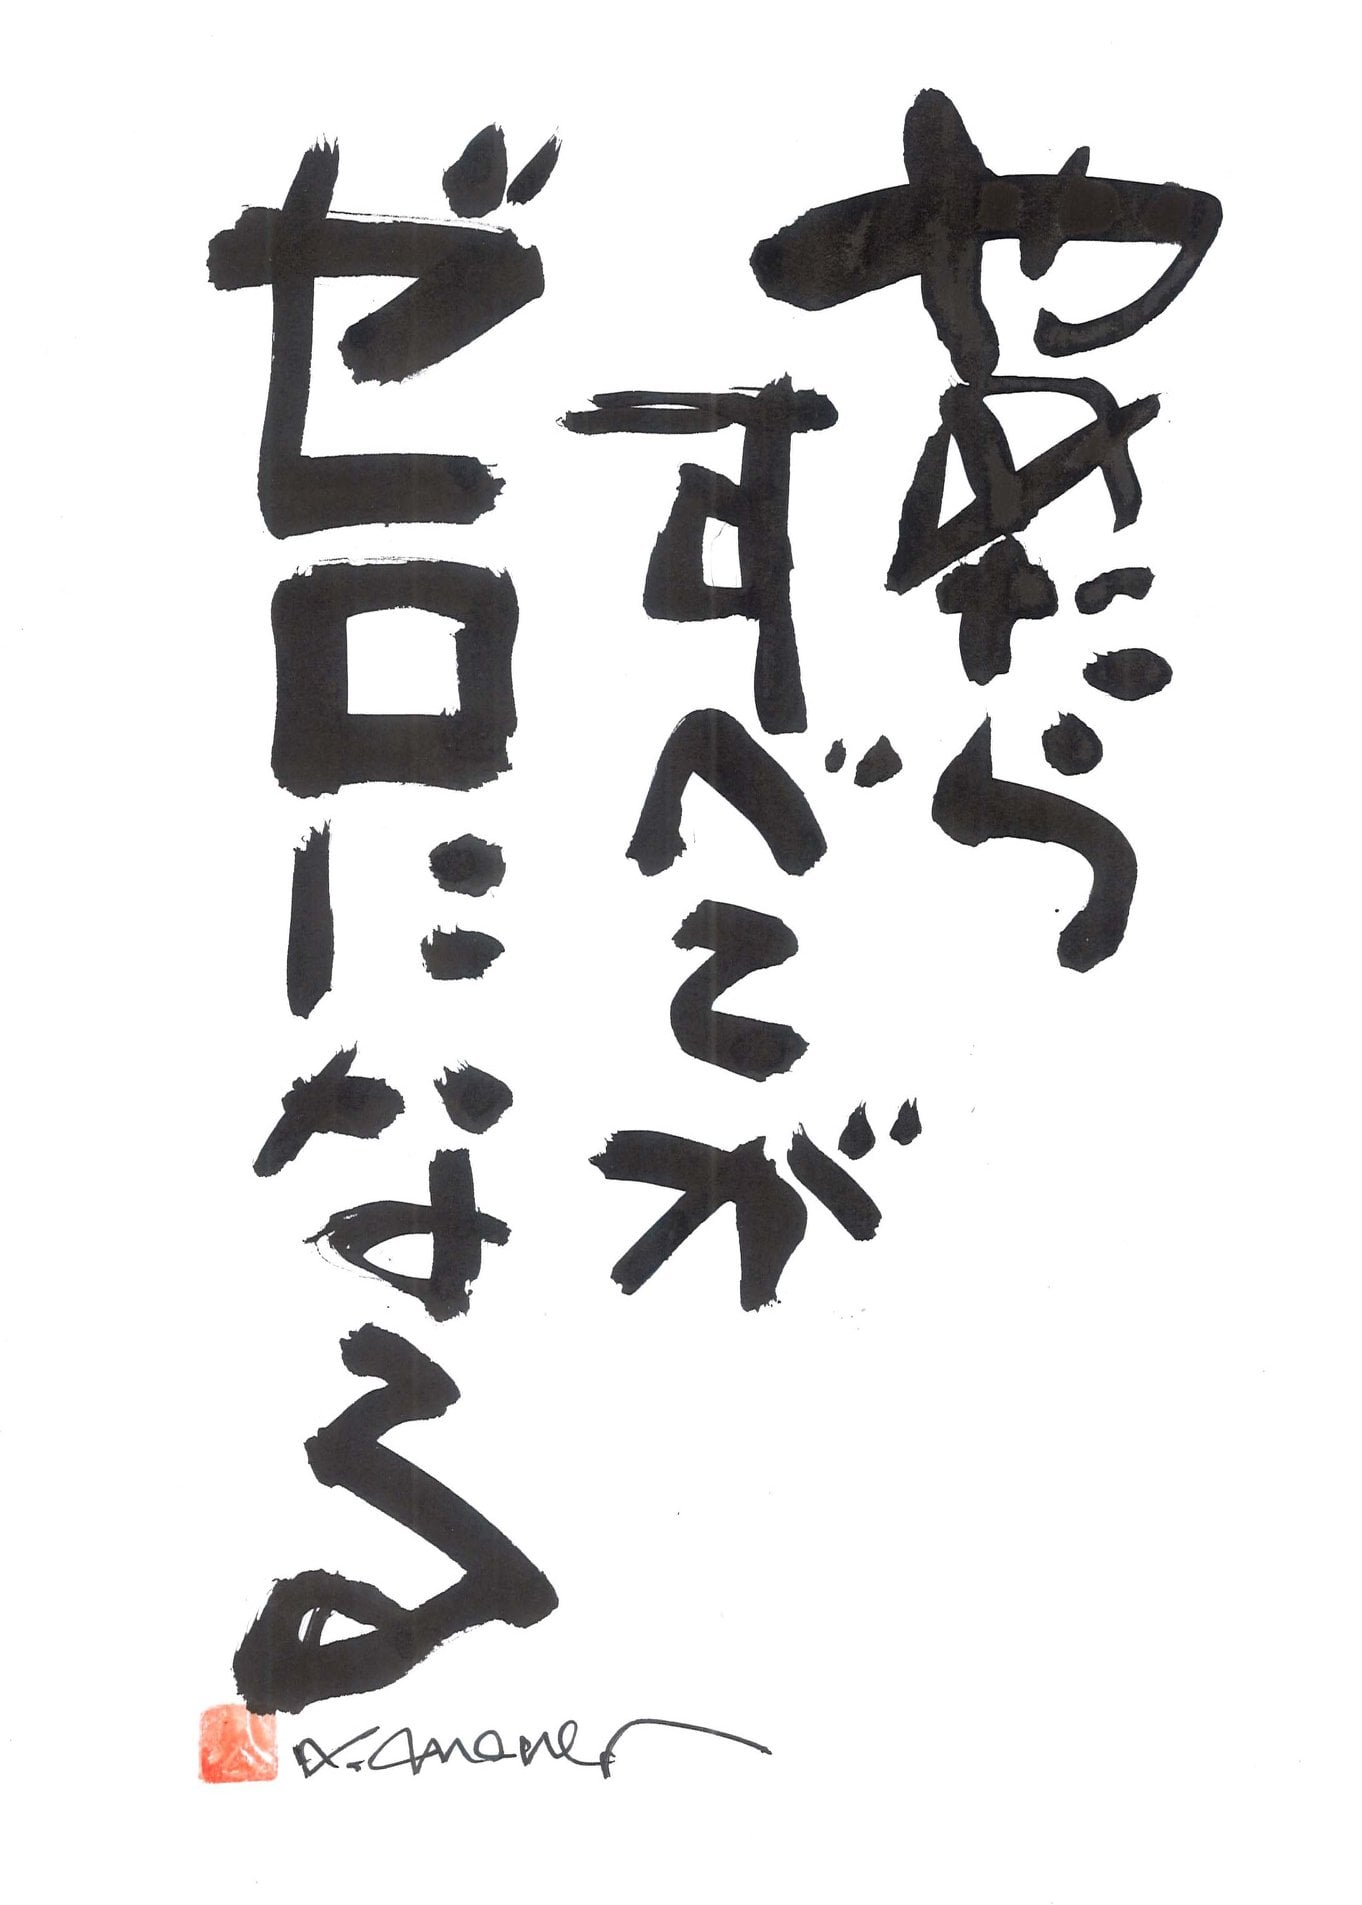 やめたら
すべてが
ゼロになる